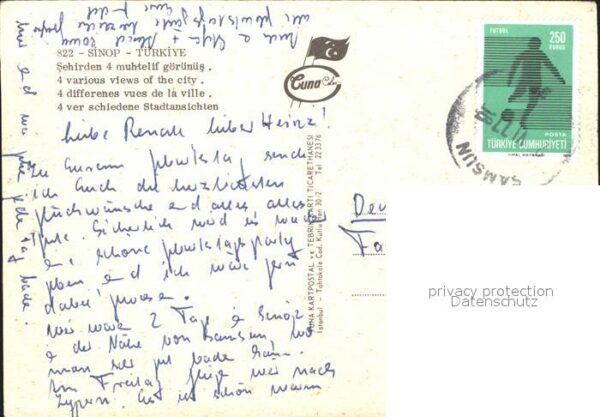 822 - SİNOP - TÜRKİYE
Şehirden 4 muhtelif görünüş.
4 various views of the city.
4 differenes vues de la ville.
4 ver schiedene Stadtansichten
Cuna Color
FUTBOL
250
KURUŞ
POSTA
TÜRKİYE CUMHURİYETİ
SAMSUN
TUNA KARTPOSTAL ve TEBRİK KARTI TİCARETHANESİ
İstanbul - Tahtakale Cad. Kutlu Han 30/2 Tel 22 3376
Liebe Renate lieber Heinz!
Zu Eurem sende
ich Euch die herzlichsten
Glückwünsche und alles alles
Gute. Sicherlich wird es wieder
e schöne
geben und ich wäre gern
dabei gewesen.
Wir waren 2 Tage in Sinop
in der Nähe von Samsun, wo
man sehr gut baden kann.
Am Freitag fliege wir nach
Zypern. Es ist schön warm
hier und wir
jede Tag bade.
Deu
privacy protection
Datenschutz